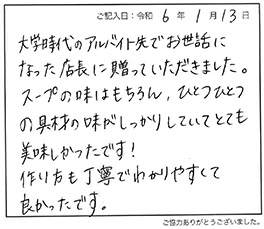 ご記入日：令和 6 年 1 月 13 日
大学時代のアルバイト先でお世話に
なった店長に贈っていただきました。
スープの味はもちろん、ひとつひとつ
の具材の味がしっかりしていてとても
美味しかったです！
作り方も丁寧でわかりやすくて
良かったです。
ご協力ありがとうございました。